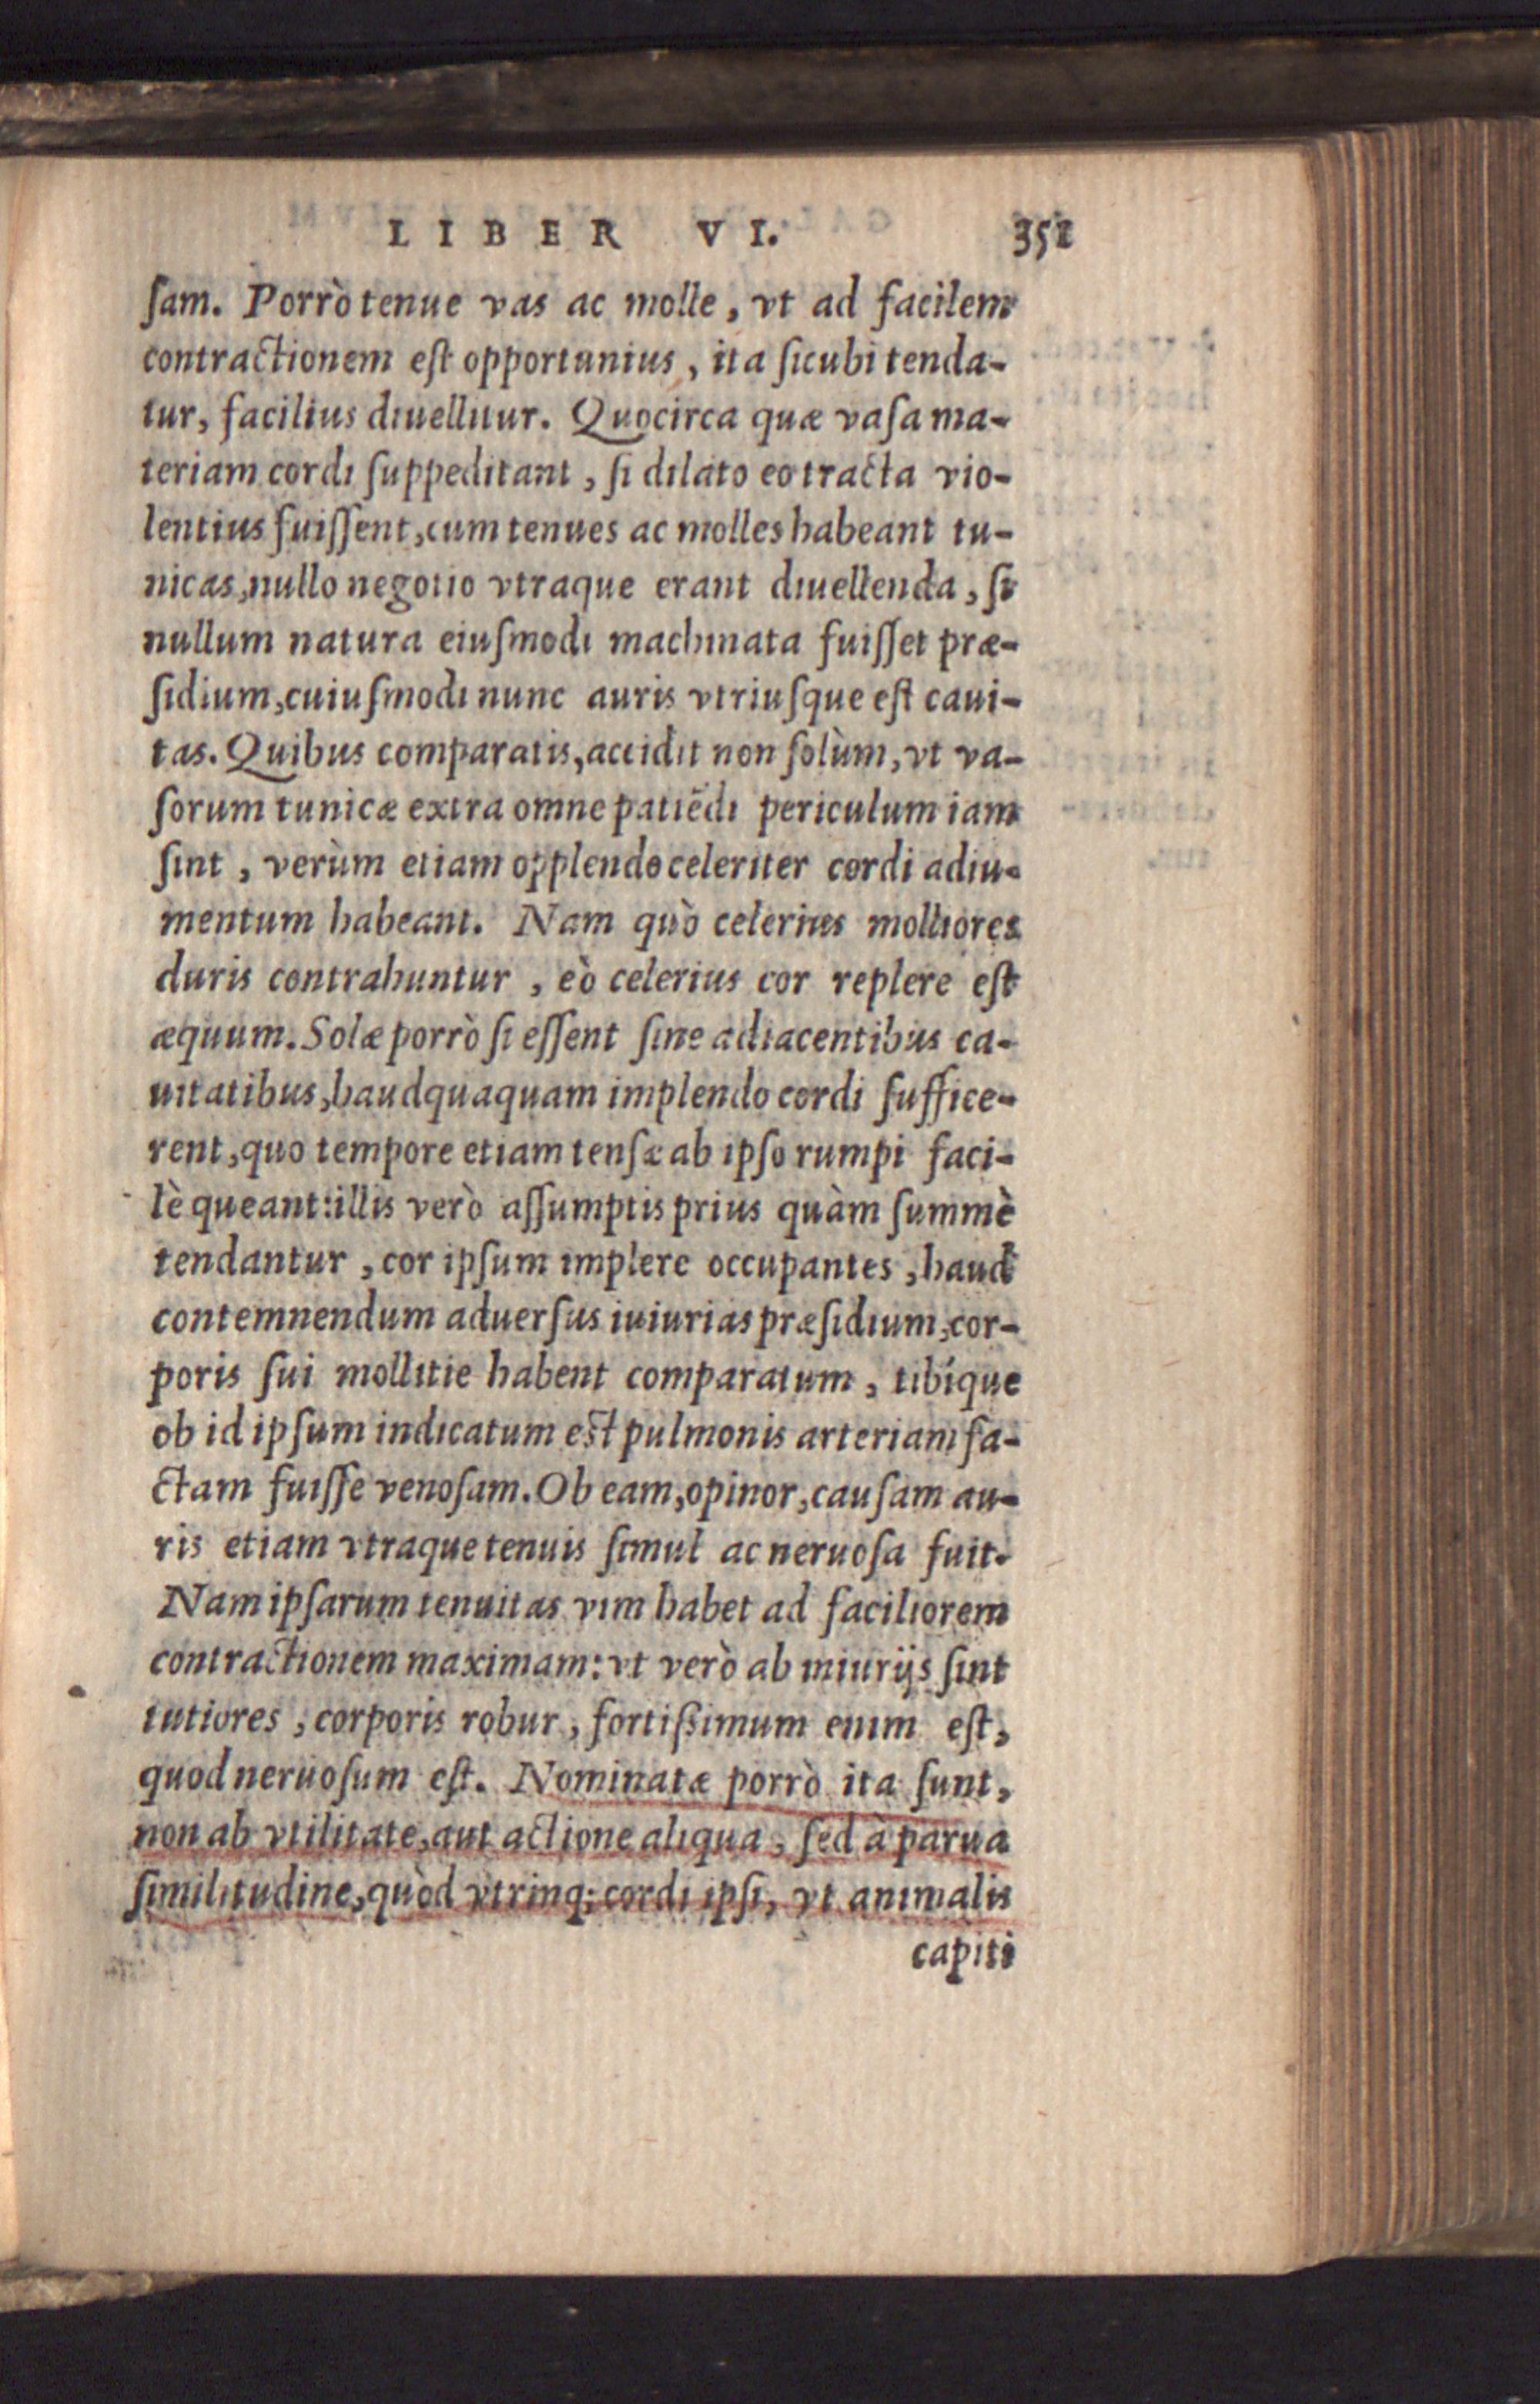 LIBER VI. 351
ſam. Porrò tenue vas ac molle, vt ad facilem
contractionem eſt opportunius, ita ſicubi tenda-
tur, facilius diuellitur. Quocirca quæ vaſa ma-
teriam cordi ſuppeditant, ſi dilato eo tracta vio-
lentius fuiſſent, cum tenues ac molles habeant tu-
nicas, nullo negotio vtraque erant diuellenda, ſi
nullum natura eiuſmodi machinata fuiſſet præ-
ſidium, cuiuſmodi nunc auris vtriuſque eſt caui-
tas. Quibus comparatis, accidit non ſolùm, vt va-
ſorum tunicæ extra omne patiẽdi periculum iam
ſint, verùm etiam opplendo celeriter cordi adiu-
mentum habeant. Nam quò celerius molliores
duris contrahuntur, eò celerius cor replere eſt
æquum. Solæ porrò ſi eſſent ſine adiacentibus ca-
uitatibus, haudquaquam implendo cordi ſuffice-
rent, quo tempore etiam tenſæ ab ipſo rumpi faci-
lè queant: illis verò aſſumptis prius quàm ſummè
tendantur, cor ipſum implere occupantes, haud
contemnendum aduerſus iuiurias præſidium, cor-
poris ſui mollitie habent comparatum, tibíque
ob id ipſum indicatum eſt pulmonis arteriam fa-
ctam fuiſſe venoſam. Ob eam, opinor, cauſam au-
ris etiam vtraque tenuis ſimul ac neruoſa fuit.
Nam ipſarum tenuitas vim habet ad faciliorem
contractionem maximam: vt verò ab iniurijs ſint
tutiores, corporis robur, fortißimum enim eſt,
quod neruoſum eſt. Nominatæ porrò ita ſunt,
non ab vtilitate, aut actione aliqua, ſed à parua
ſimilitudine, quòd vtrinq; cordi ipſi, vt animalis
capiti